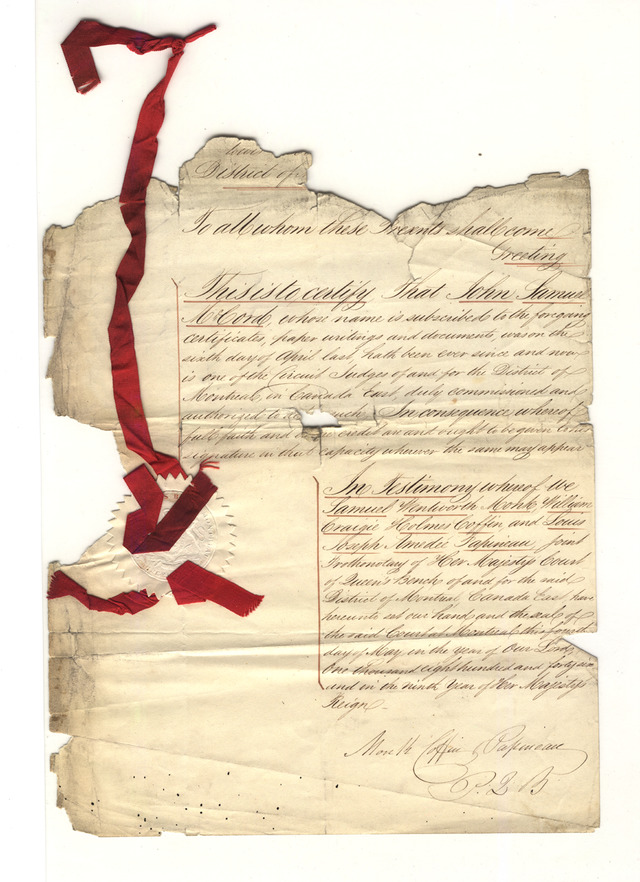 District of
To all whom these Presents shall come
Greeting
This is to certify That John Samuel
McCord, whose name is subscribed to the forgoing
certificates, paper writings and documents, was on the
sixth day of April last, hath been ever since and now
is one of the Circuit Judges of and for the District of
Montreal, in Canada East, duly commissioned and
authorized to such. In consequence whereof
full faith and credit are and ought to be given to his
signature in that capacity wherever the same may appear
In Testimony whereof We
Samuel Wentworth Monk, William
Craigie Holmes Coffin and Louis
Joseph Amedée Papineau, Joint
Prothonotary of Her Majesty's Court
of Queen's Bench of and for the said
District of Montreal, Canada East, have
hereunto set our hand and the seal of
the said Court at Montreal this
day of May in the year of Our Lord
One thousand eight hundred and forty six
and in the ninth Year of Her Majesty's
Reign.
Monk Coffin & Papineau
P. Q B